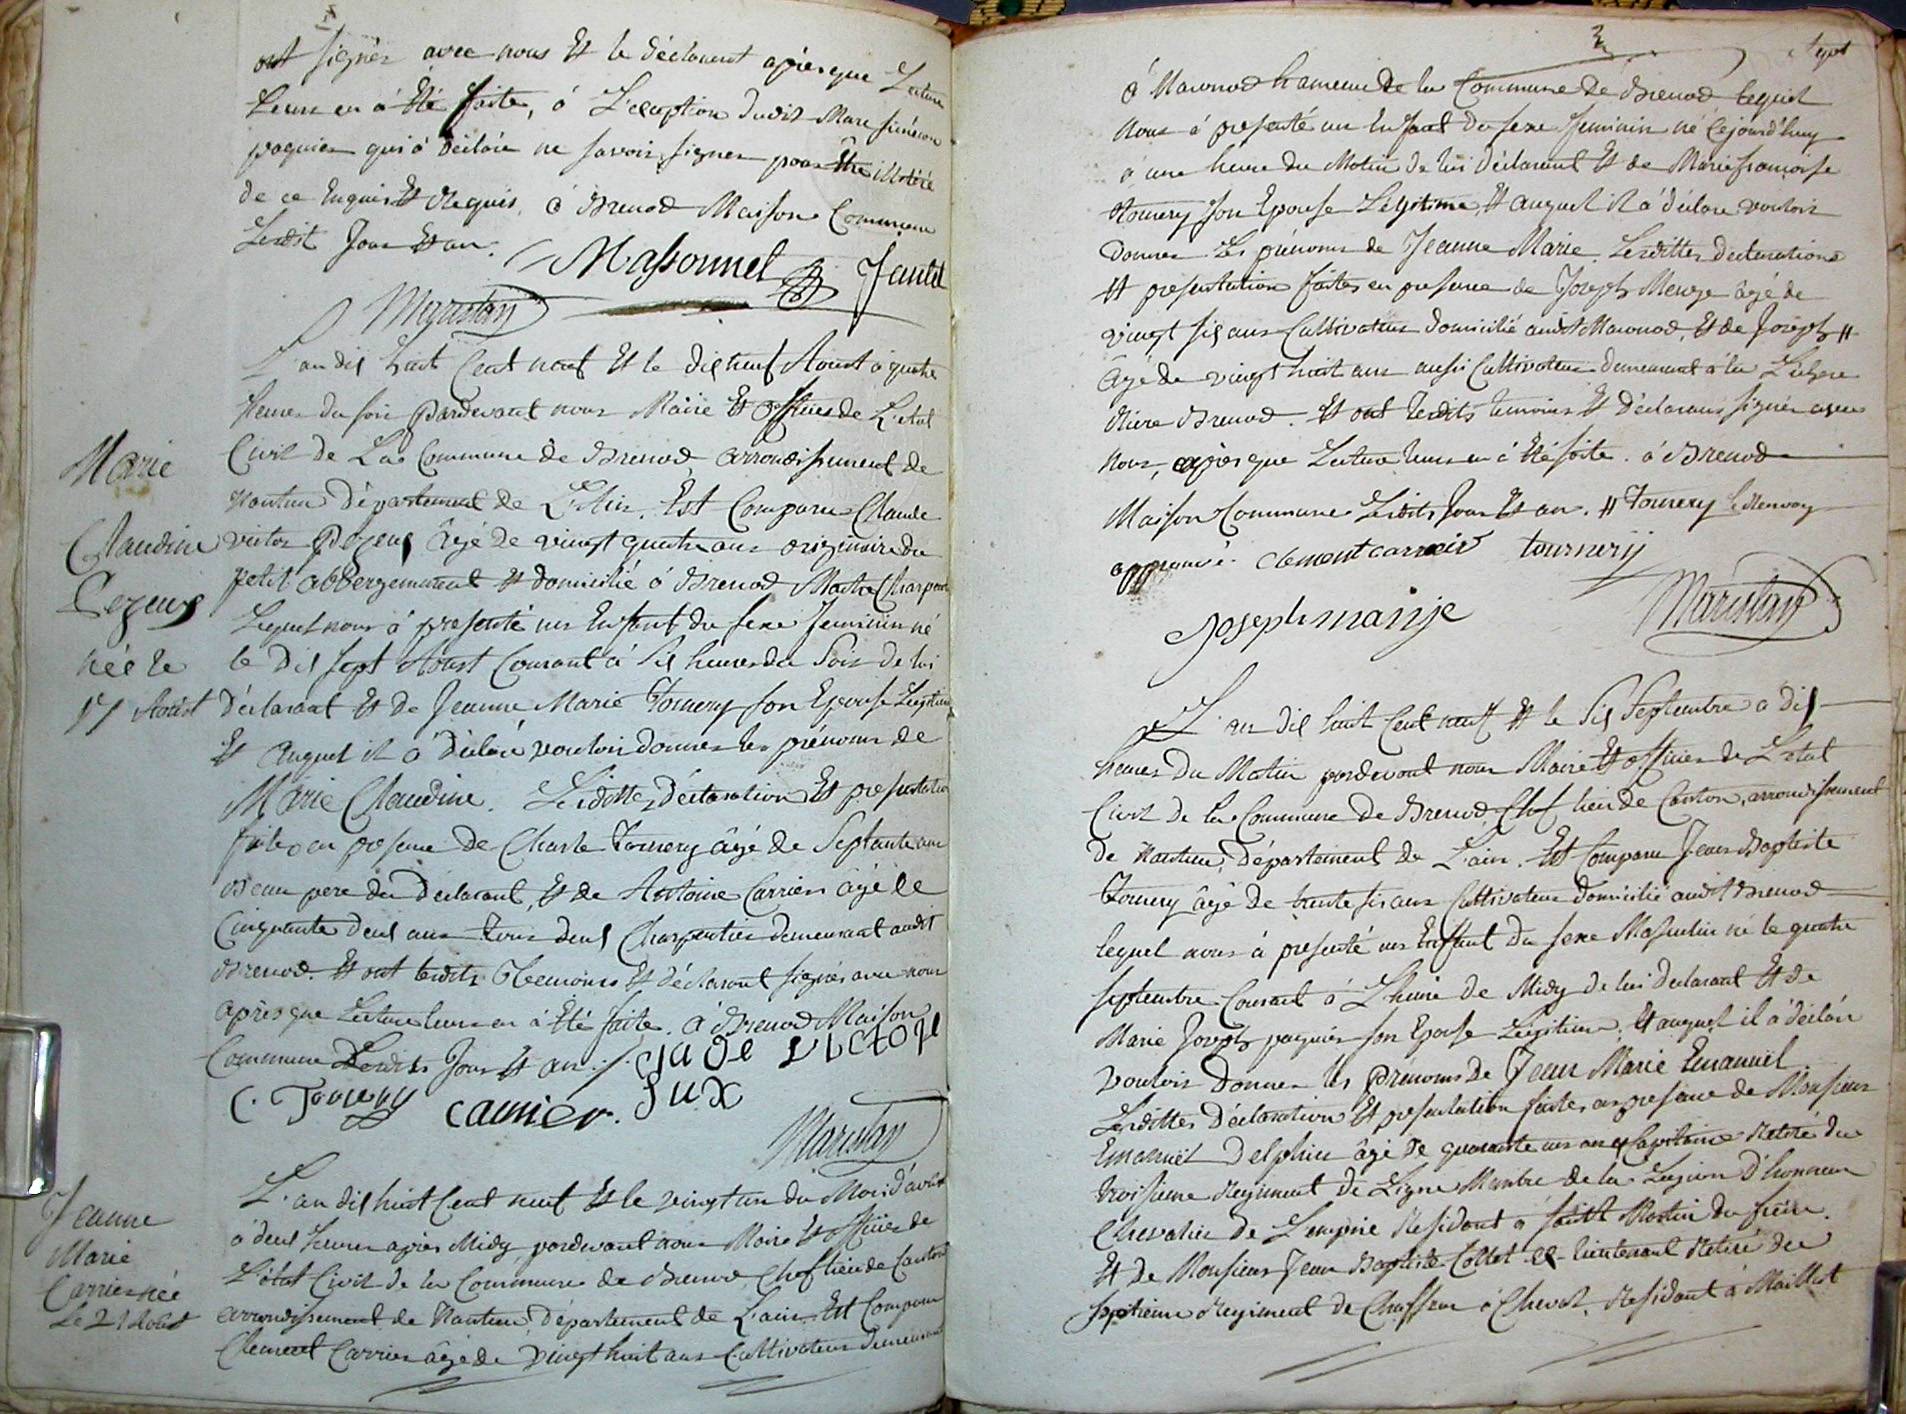 ont signés avec nous Et le déclarant après que Lecture
Leurs en á Eté faite, á L'exception dudit Marc
paquier qui á déclaré ne savoir signer pour Etre illitéré
de ce Enquis Et Requis, á Brenod Maison Commune
Lesdit Jour Et an.
Massonnet Jantet
L'an dix huit Cent neuf Et le dix neuf Aoust á quatre
heures du soir pardevant nous Maire Et officier de L'etat
Civil de La Commune de Brenod arrondissement de
Nantua Département de L'Ain. Est Comparu Claude
victor âgé de vingt quatre ans originaire du
petit abbergement Et domicilié á Brenod Maitre Charpentier
Lequel nous á presenté un Enfant du sexe feminin né
le Dix sept Aoust Courant á Six heures du Soir de lui
Déclarant Et de Jeanne Marie Tournery son Epouse Legitime
Et Auquel il á Déclaré vouloir donner les prénoms de
Marie Claudine. Lesdittes Déclaration Et presentation
faite en presence de Charle Tournery âgé de Septante ans
Beau pere du Déclarant, Et de Antoine Carrier âgé de
Cinquante deux ans tous deux Charpentier demeurant audit
Brenod. Et ont lesdits Temoins Et déclarant signés avec nous
après que Lecture leurs en á Eté faite. á Brenod Maison
Commune Lesdits Jour Et an ./.
C. Tournery carrier.
Marie
Claudine
née le
17 Aoust
L'an dix huit Cent neuf Et le vingt un du Mois d'aoust
á deux heures après Midy pardevant nous Maire Et officier de
L'état Civil de la Commune de Brenod Chef lieu de Canton
arrondissement de Nantua Département de L'ain. Est Comparu
Clement Carrier âgé de vingt huit ans Cultivateur demeurant
Jeanne
Marie
Carrier née
Le 21 Aoust
3
Sept
á Macconod hameau de la Commune de Brenod, lequel
nous á presenté un Enfant du sexe feminin né Cejourd'huy
á une heure du Matin de lui déclarant Et de Marie françoise
Tournery son Epouse Legitime, Et auquel il á déclaré vouloir
donner Les prénoms de Jeanne Marie. Lesdittes declaration
Et presentation faites en presence de Joseph âgé de
vingt six ans Cultivateur domicilié audit Macconod, Et de Joseph #
Agé de vingt huit ans aussi Cultivateur demeurant á la
Brenod. Et ont lesdits temoins Et Déclarans signés avec
Nous, après que Lecture leurs en á Eté faite. á Brenod
Maison Commune Lesdits Jour Et an. # Tournery le Renvoy
approuvé. clement carrier tournery
Joseph
L'an dix huit Cent neuf Et le Six Septembre á dix
heures du Matin pardevant nous Maire Et officier de L'etat
Civil de la Commune de Brenod Chef lieu de Canton, arrondissement
de Nantua, Département de L'ain. Est Comparu Jean Baptiste
Tournery âgé de trente six ans Cultivateur domicilié audit Brenod
lequel nous á presenté un Enfant du sexe Masculin né le quatre
septembre Courant á L'heure de Midy de lui declarant Et de
Marie Joseph paquier son Epouse Legitime, Et auquel il á déclaré
vouloir donner les prenoms de Jean Marie Emanuel
Lesdittes Déclaration Et presentation faites en presence de Monsieur
Emanuel Delphin âgé de quarante un ans Capitaine Retiré du
troisieme Regiment de Ligne Membre de la Legion D'honneur
Chevalier de L'empire Residant á Saint Martin du frêne.
Et de Monsieur Jean Baptiste Collet lieutenant Retiré du
septieme Regiment de Chasseur á Cheval, Residant á Maillat